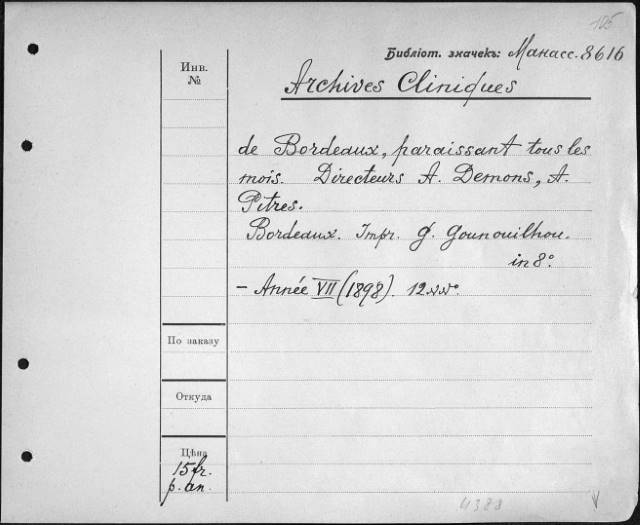 106
Библіот. значекъ: Манасс. 8616
Инв.
№
Archives Cliniques
de Bordeaux, paraissant tous les
mois. Directeurs A. Demons, A.
Pitres.
Bordeaux. Impr. G. Gounouilhou.
in 8°.
– Année VII (1898). 12 №№.
По заказу
Откуда
Цѣна
15 fr.
p. an.
4388